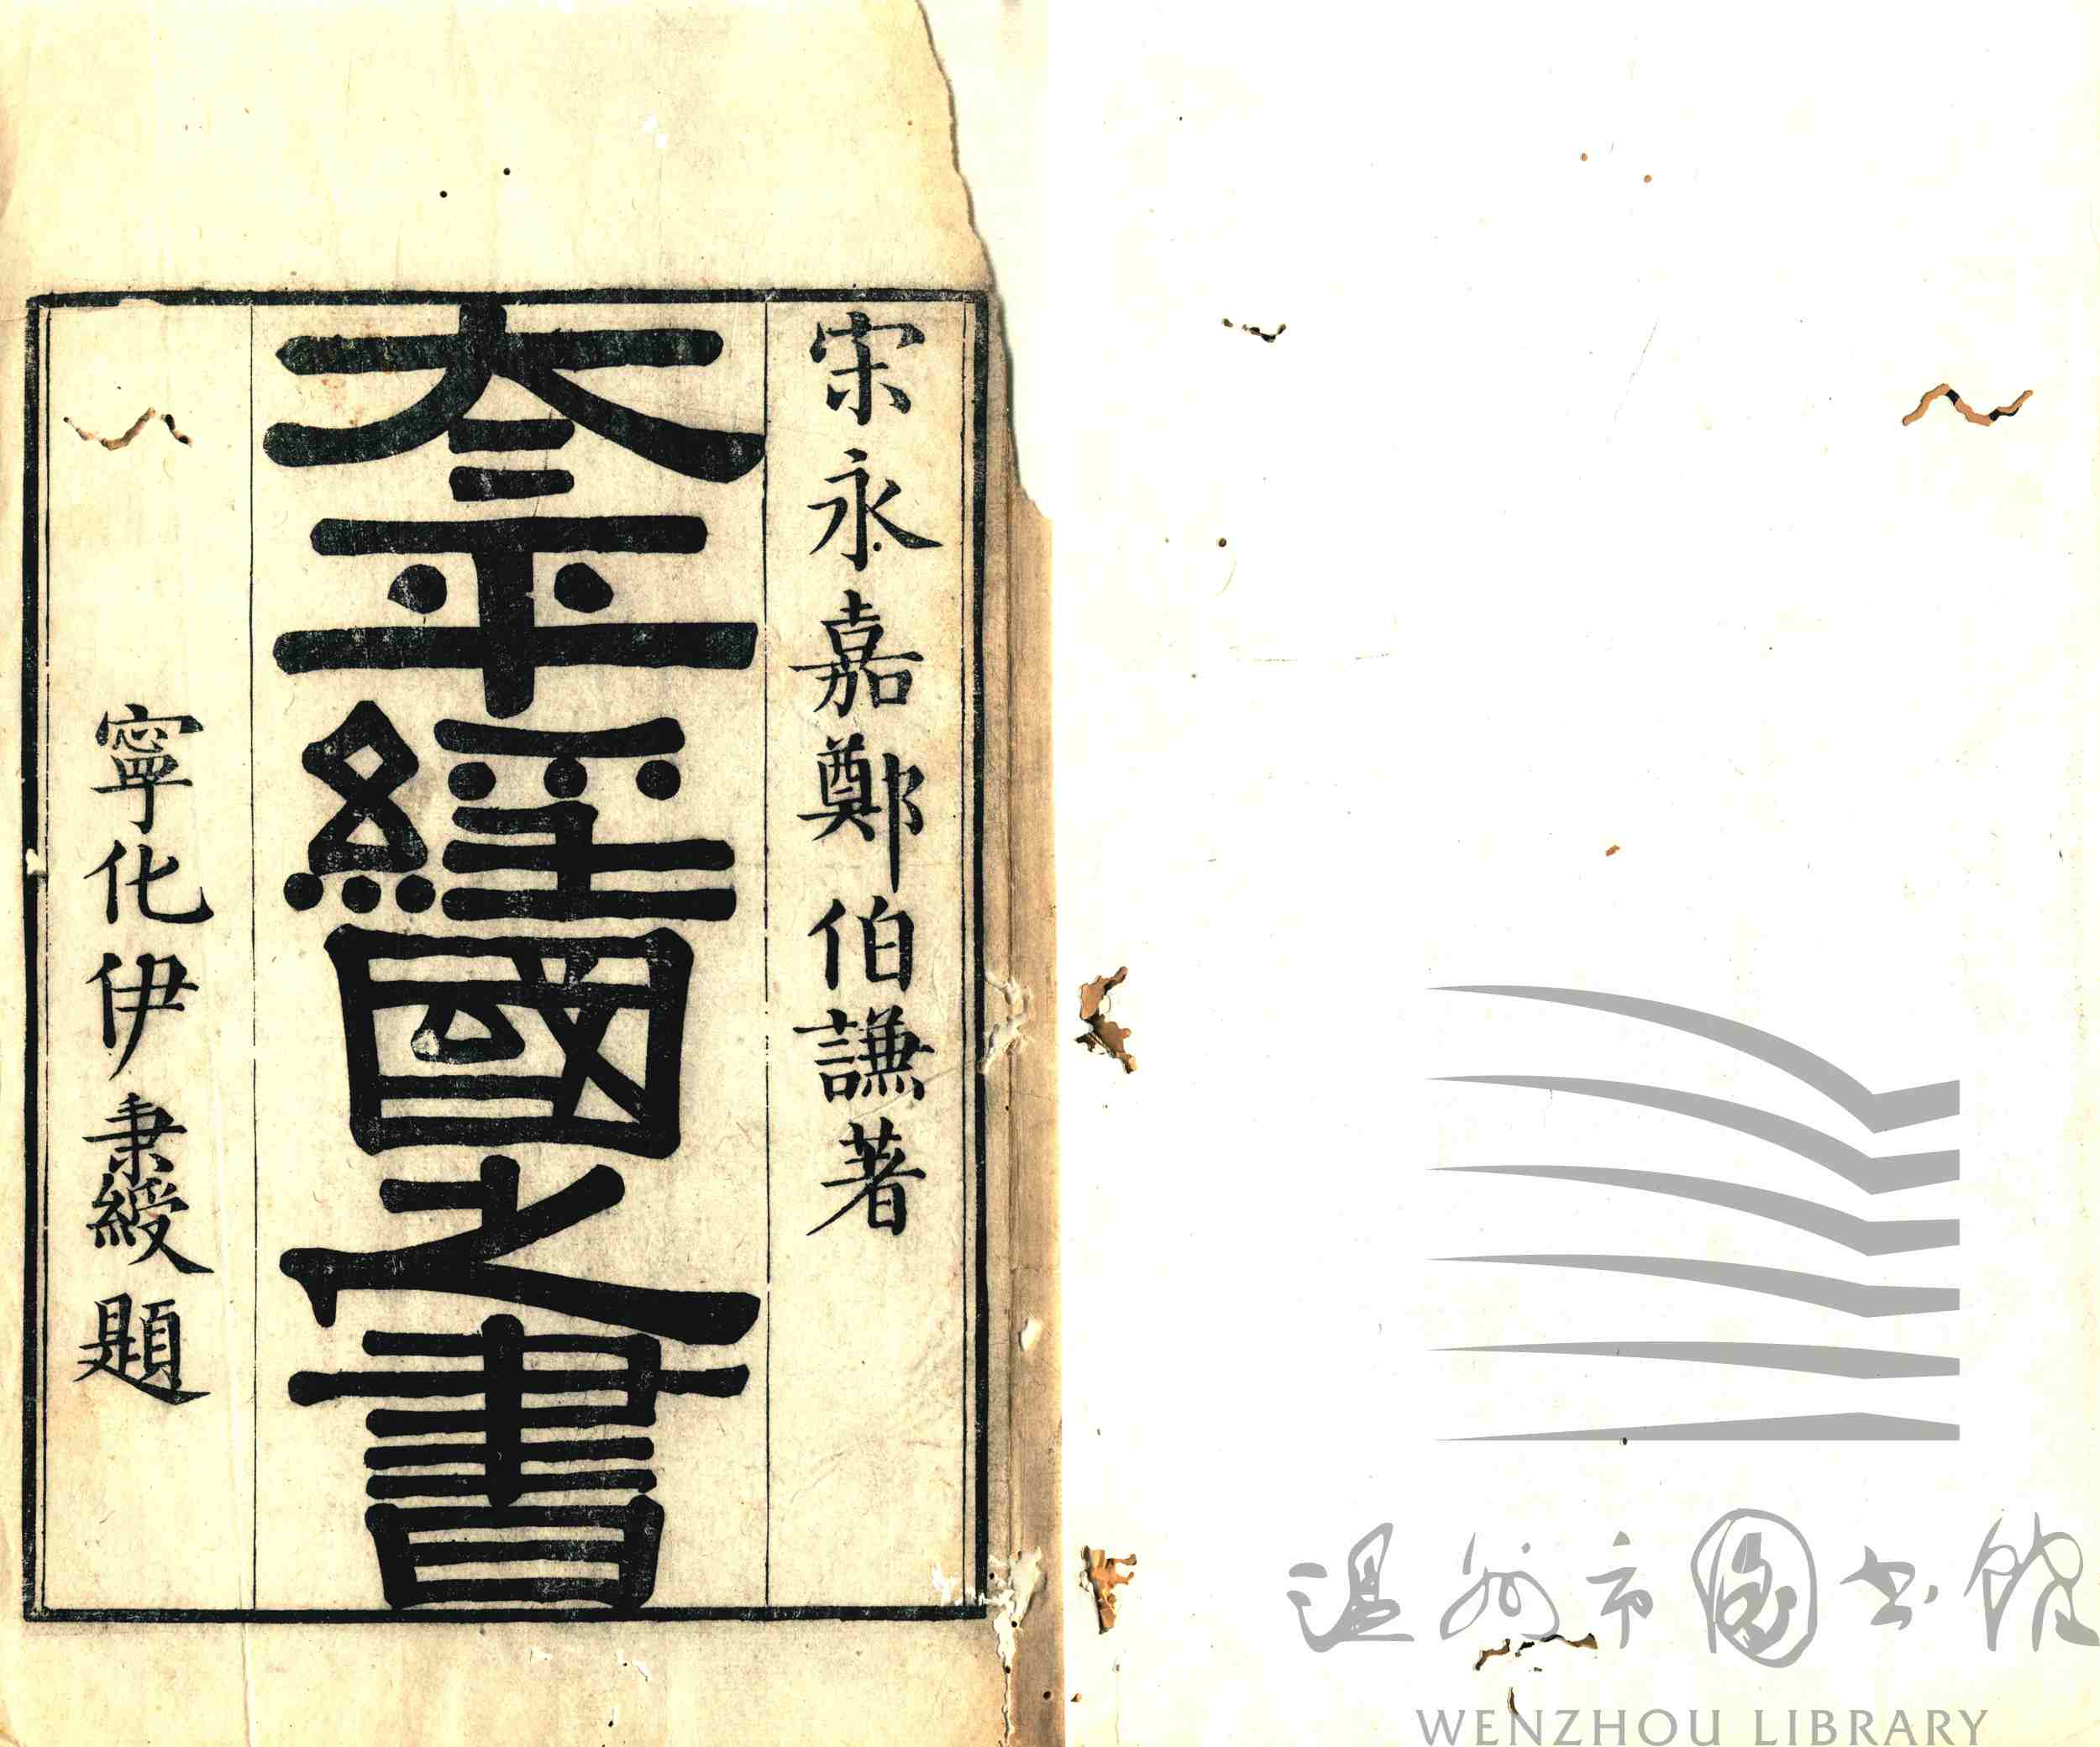 宋永嘉鄭伯謙著
夳平經國之書
寧化伊秉綬題
温州市图书馆
WENZHOU LIBRARY